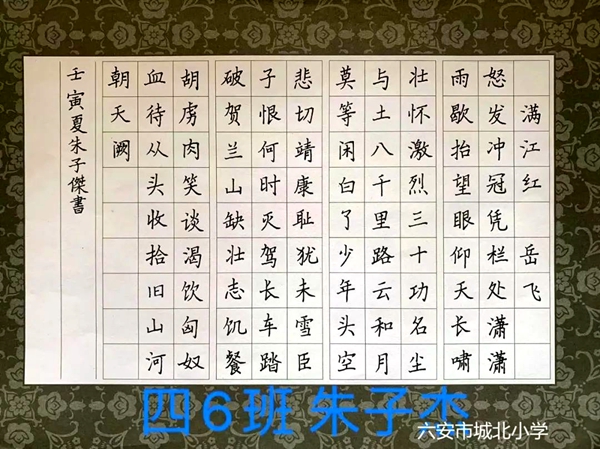 满江红 岳飞
怒发冲冠凭栏处潇潇
雨歇抬望眼仰天长啸
壮怀激烈三十功名尘
与土八千里路云和月
莫等闲白了少年头空
悲切靖康耻犹未雪臣
子恨何时灭驾长车踏
破贺兰山缺壮志饥餐
胡虏肉笑谈渴饮匈奴
血待从头收拾旧山河
朝天阙
壬寅夏朱子傑書
四6班 朱子杰
六安市城北小学